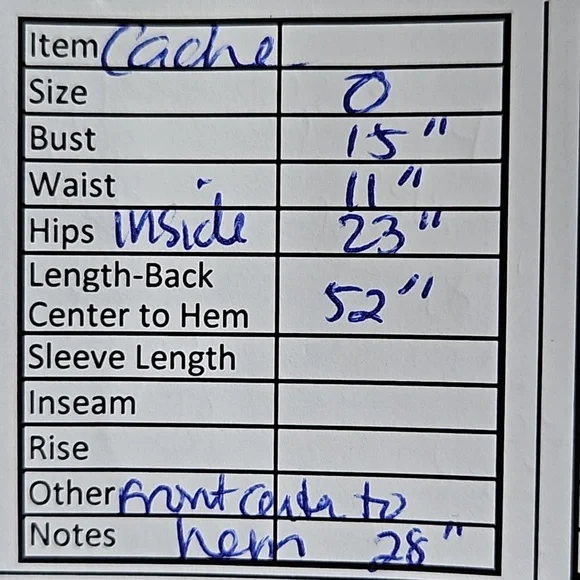 Item Cache
Size 0
Bust 15"
Waist 11"
Hips inside 23"
Length-Back
Center to Hem 52"
Sleeve Length
Inseam
Rise
Other Front Center to
Notes hem 28"